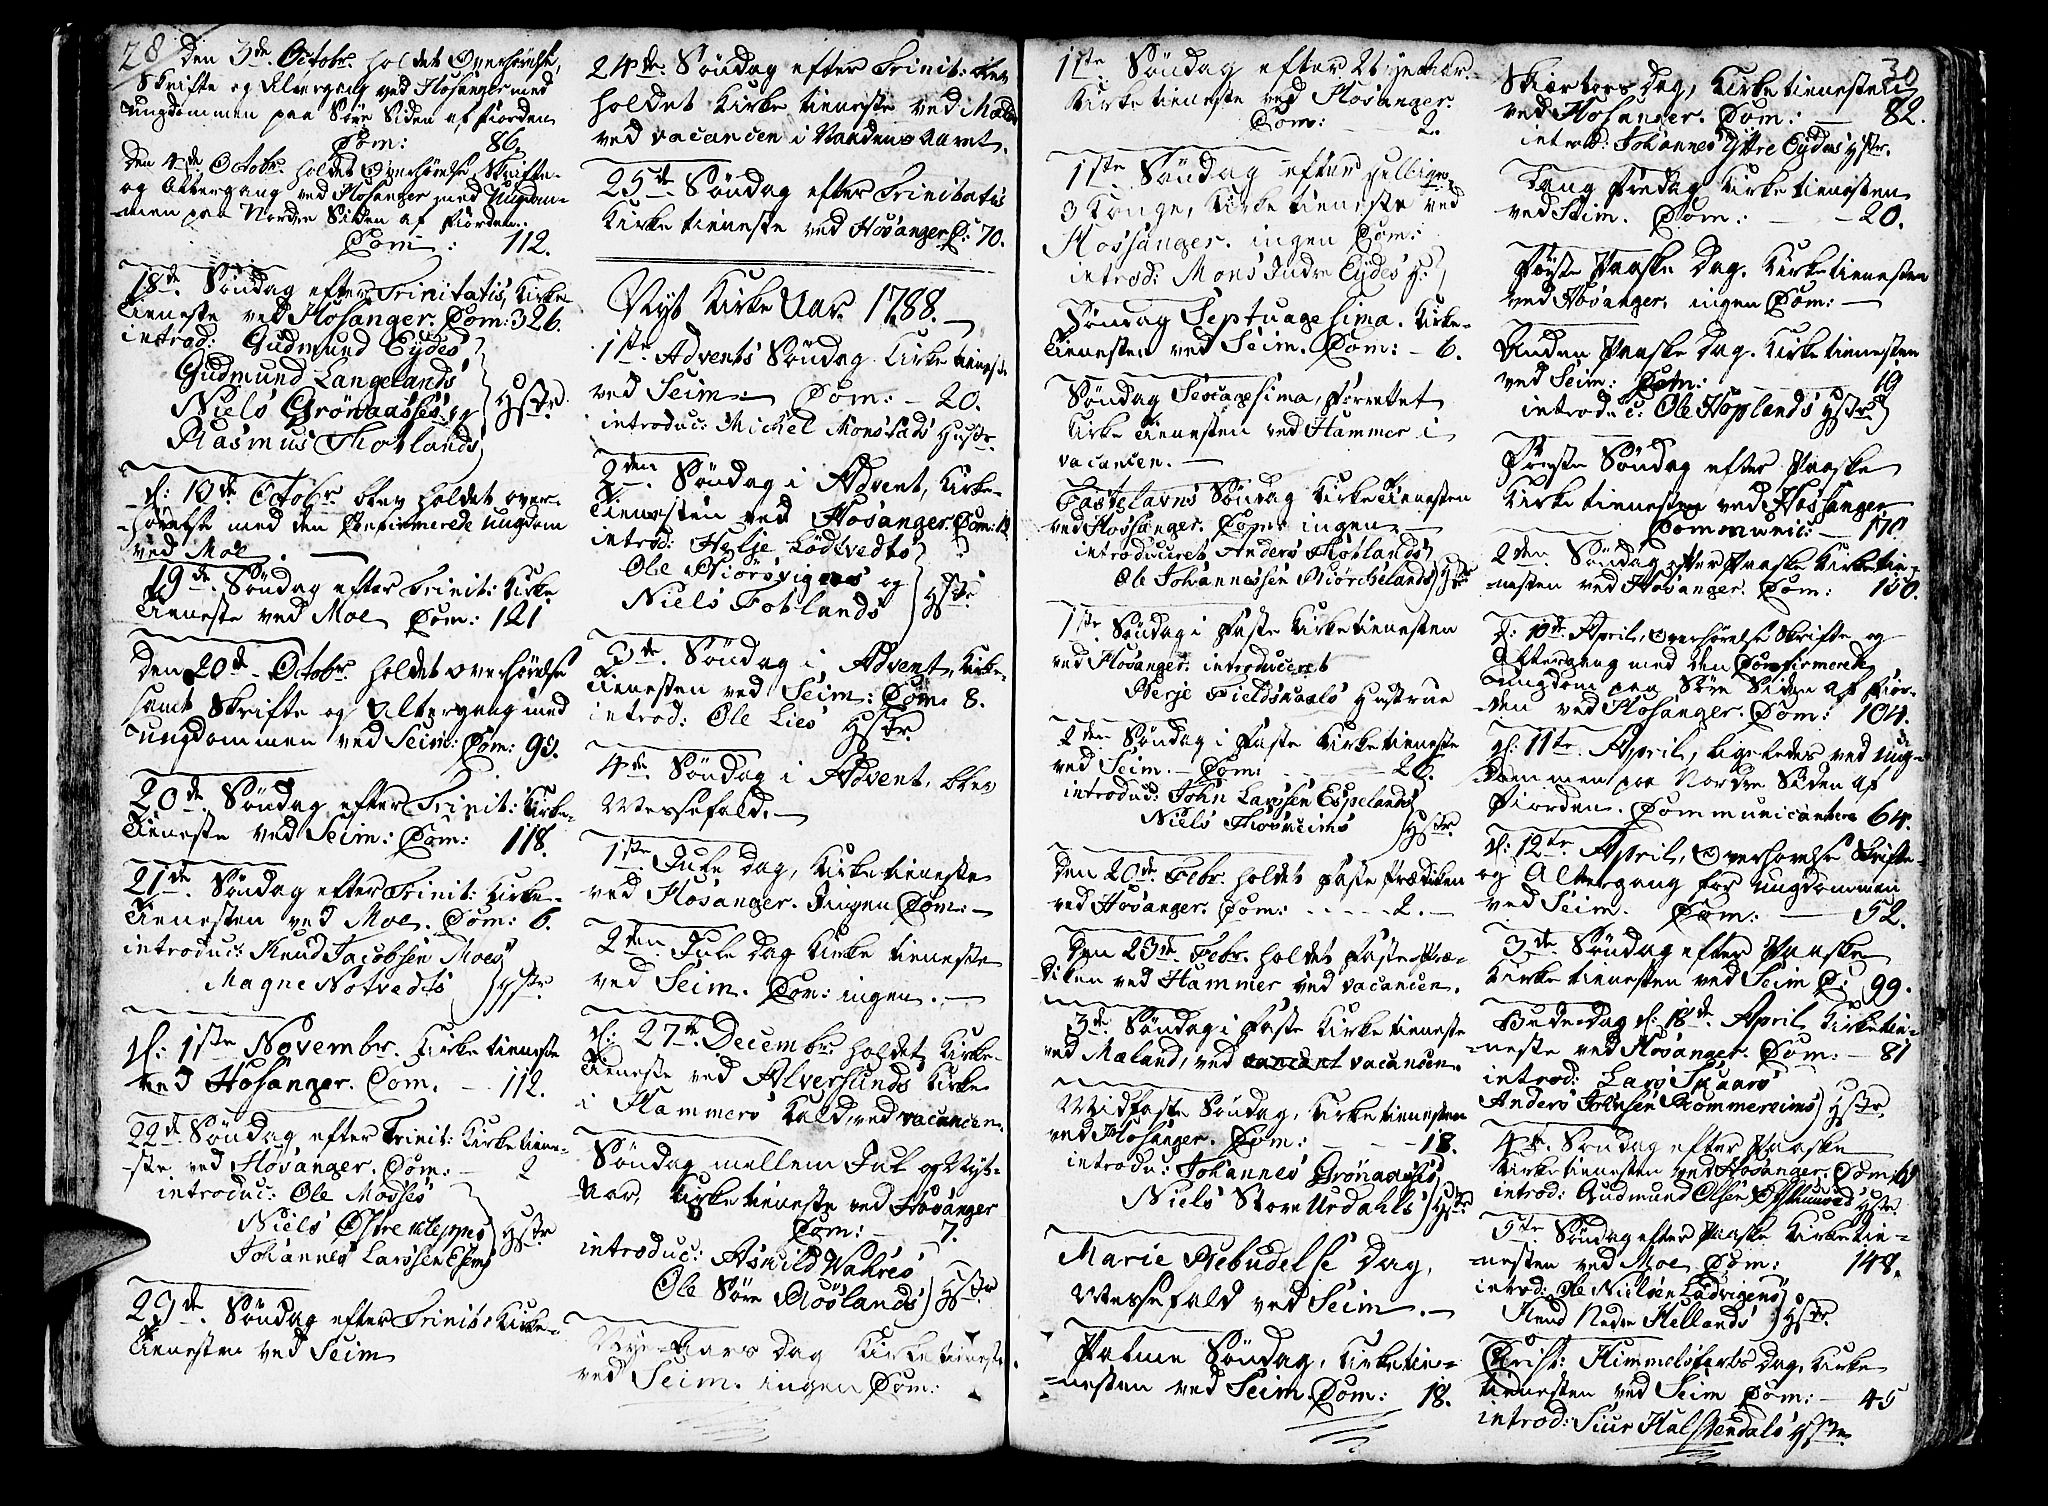 28 Den 3de Octobr. holdet Overhørelse,
Skrifte og Altergang ved Hosanger med
ungdommen paa Søre Siden af Fiorden
Com: 86.
Den 4de Octobr. holdet Overhørelse, Skrifte-
og Altergang ved Hosanger med Ungdom-
men paa Nordre Siden af Fiorden.
Com: 112.
18de Søndag efter Trinitatis, Kirke-
tieneste ved Hosanger. Com: 326.
introd: Gudmund Eydes
Gudmund Langelands
Niels Grønaasses, og Hstr.
Rasmus Thotlands
d: 10de Octobr. blev holdet over-
hørelse med den Confirmerede ungdom
ved Moe.
19de Søndag efter Trinit: Kirke
tieneste ved Moe Com: 121
Den 20de Octobr. holdet overhørelse
samt Skrifte og Altergang med
ungdommen ved Seim: Com: 93.
20de Søndag efter Trinit: Kirke-
tieneste ved Seim: Com: 118.
21de Søndag efter Trinit: Kirke-
tienesten ved Moe. Com: 6.
introduc: Knud Jacobsen Moes
Magne Notvedts Hstr
d: 1ste Novembr. Kirketieneste
ved Hosanger. Com. 112.
22de Søndag efter Trinit: Kirketiene-
ste ved Hosanger. Com: 2
introduc: Ole Modses
Niels Østre Kleppes Hstr
Johannes Larssen
23de Søndag efter Trinit: Kirke-
tienesten ved Seim
24de Søndag efter Trinit: blev
holdet Kirketieneste ved
ved vacancen i Naadens Aaret.
25de Søndag efter Trinitatis
Kirketieneste ved Hosanger C: 70.
Nyt Kirke Aar 1788.
1ste Advents Søndag Kirketieneste
ved Seim: Com: 20.
introduc: Michel Monstads Hustr.
2den Søndag i Advent, Kirke-
tienesten ved Hosanger. Com:
introd: Helje Lødtvedts
Ole og
Niels Fotlands Hstr
3de Søndag i Advent, Kirke-
tienesten ved Seim: Com: 8.
introd: Ole Lies Hstr
4de Søndag i Advent, blev
Messefald.
1ste Jule dag, Kirketieneste
ved Hosanger. Ingen Com:
2den Jule dag Kirketieneste
ved Seim. Com: ingen.
d: 27de Decembr. holdet Kirke-
tieneste ved Alversunds Kirke
i Hammers Kald, ved vacancen.
Søndag mellem Jul og Nyt-
Aar, Kirketieneste ved Hosanger
Com: 7.
introduc: Askild Wahres
Ole Søre Røslands Hstr
Nye-Aars Dag Kirketieneste
ved Seim. ingen Com:
1ste Søndag efter Nyeaar.
Kirketieneste ved Hosanger.
Com: 2.
1ste Søndag efter hellige
3 Konge, Kirketieneste ved
Hossanger. ingen Com:
introd: Mons Indre Eydes H:
Søndag Septuagesima. Kirke-
tienesten ved Seim. Com: 6.
Søndag Sexagesima, forrettet
Kirketienesten ved Hammer i
vacancen.
Fastelavns Søndag Kirketienesten
ved Hossanger. Com: ingen
introduceret Anders
Ole Johannessen Hstr
1ste Søndag i Faste Kirketienesten
ved Hosanger. introduceret
Hustrue
2den Søndag i Faste Kirketieneste
ved Seim. Com: 26.
introduc: John Larssen Espelands
Niels Hstr.
Den 20de Febr. holdet Faste Prædiken
ved Hosanger. Com: 2.
Den 23de Febr. holdet Faste Præ-
diken ved Hammer ved vacancen.
3de Søndag i Faste Kirketieneste
ved Mæland, ved vacancen.
Midfaste Søndag, Kirketienesten
ved Hosanger. Com: 18.
introdu: Johannes Grønaasses
Niels Store Urdahls Hstr
Marie Bebudelse Dag,
Messefald ved Seim.
Palme Søndag, Kirketie-
nesten ved Seim. Com: 18.
30
Skiertors Dag, Kirketienesten
ved Hosanger. Com: 82.
introd: Johannes Yttre Eydes Hstr.
Lang Fredag Kirketienesten
ved Seim. Com: 20.
Første Paaske Dag. Kirketienesten
ved Hosanger, ingen Com:
Anden Paaske Dag. Kirketienesten
ved Seim: Com: 19
introduc: Ole Hoplands Hstr
Første Søndag efter Paaske
Kirketienesten ved Hossanger
Communic:
2den Søndag efter Paaske Kirketie-
nesten ved Hosanger. Com: 150.
d: 10de April, Overhørelse Skrifte og
Altergang med den Confirmerede
ungdom paa Søre Siden af Fior-
den ved Hosanger. Com: 104.
d: 11te April, ligeledes ved Ung-
dommen paa Nordre Siden af
Fiorden. Communicantere 64.
d: 12te April, Overhørelse Skrifte-
og Altergang for ungdommen
ved Seim. Com: 52.
3de Søndag efter Paaske
Kirketienesten ved Seim C: 99.
Bededag d: 18de April Kirketie-
neste ved Hosanger. Com: 81
introd: Lars Skaars
Anders Hstr.
4de Søndag efter Paaske
Kirketienesten ved Hosanger. Com:
introd: Gudmund Olsen Hstr.
5te Søndag efter Paaske Kirketie-
nesten ved Moe Com: 148.
introd: Ole Nielsen Ladvigens
Knud Nedre Hellands Hstr.
Christ: Himmelsfarts Dag, Kirke
tienesten ved Seim Com: 45
introd: Siur Halstendals Hstr